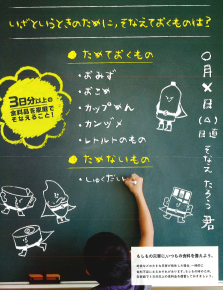 いざというときのために、そなえておくものは?
●ためておくもの
・おみず
・おこめ
・カップめん
・カンヅメ
・レトルトのもの
●ためないもの
・しゅくだい
3日分以上の
食料品を家庭で
そなえること!
〇月×日(△)
日直
そなえ たろう君
もしもの災害に、いつもの食料を備えよう。